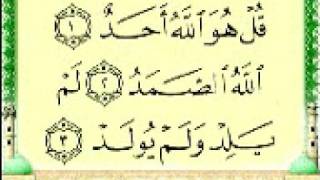 قُلْ هُوَ ٱللَّهُ أَحَدٌ ١
ٱللَّهُ ٱلصَّمَدُ ٢ لَمْ
يَلِدْ وَلَمْ يُولَدْ ٣